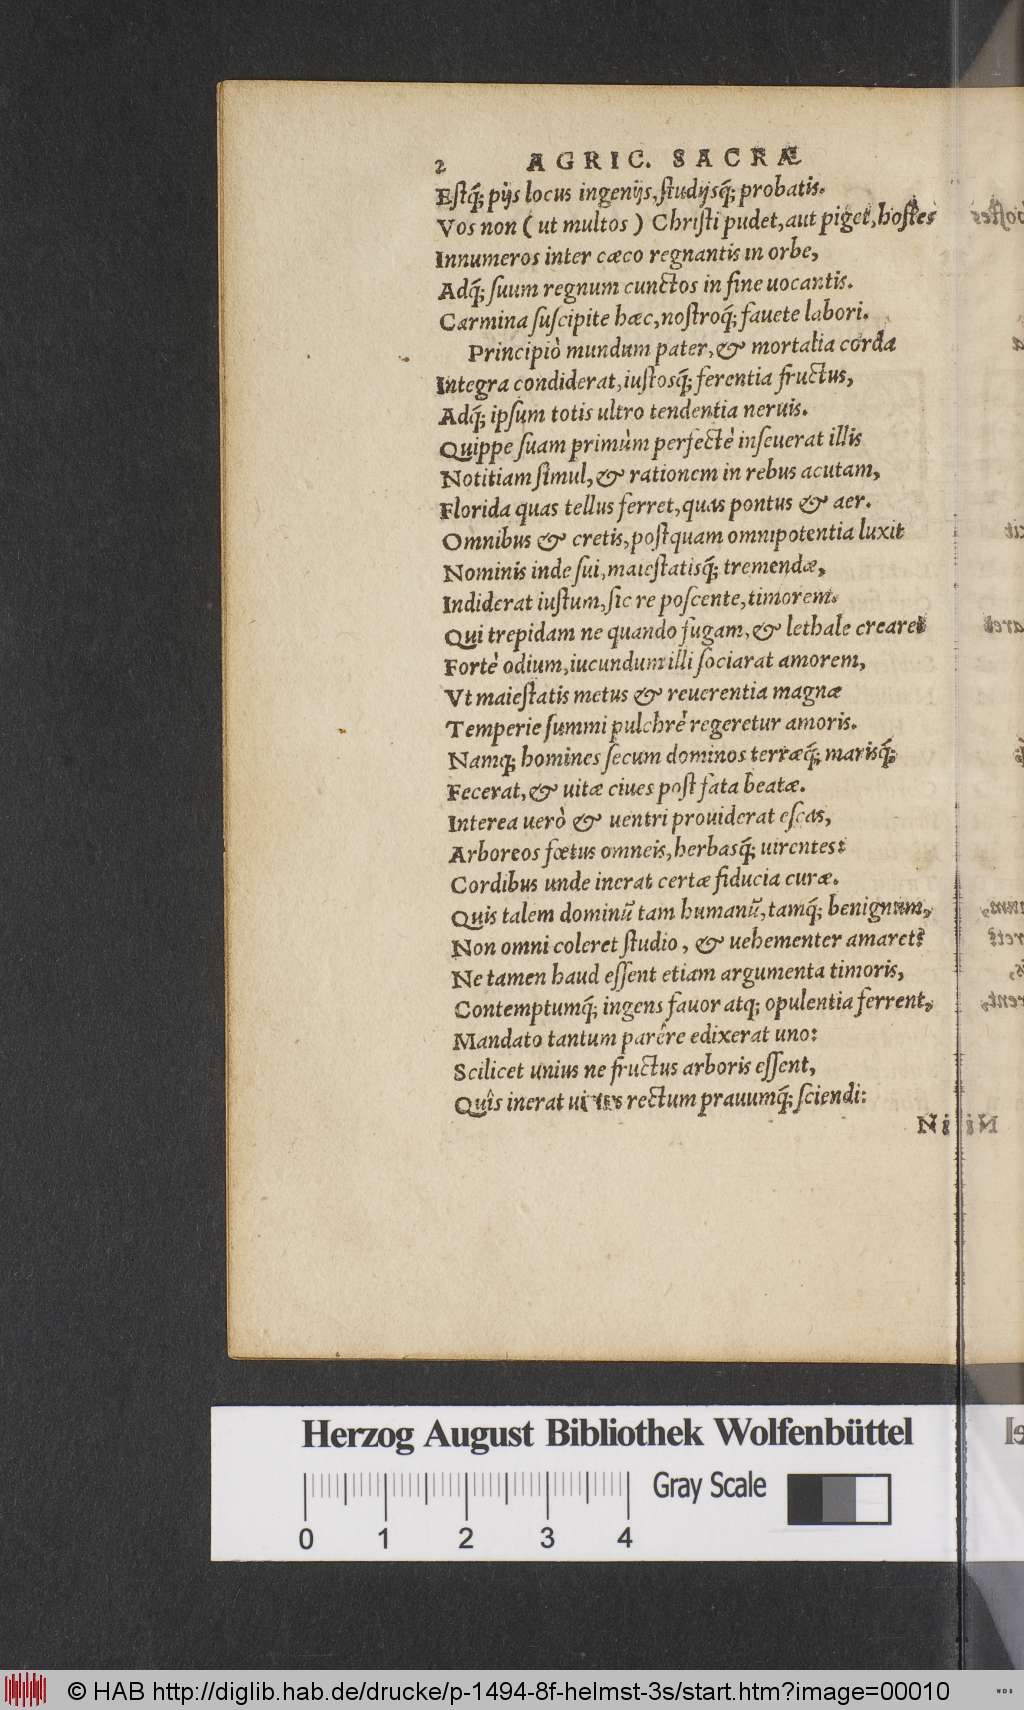 2 AGRIC. SACRÆ
Estq́; pijs locus ingenijs, studijsq́; probatis.
Vos non ( ut multos ) Christi pudet, aut piget, hostes
Innumeros inter cæco regnantis in orbe,
Adq́; suum regnum cunctos in fine uocantis.
Carmina suscipite hæc, nostroq́; fauete labori.
Principiò mundum pater, & mortalia corda
Integra condiderat, iustosq́; ferentia fructus,
Adq́; ipsum totis ultro tendentia neruis.
Quippe suam primùm perfectè inseuerat illis
Notitiam simul, & rationem in rebus acutam,
Florida quas tellus ferret, quas pontus & aer.
Omnibus & cretis, postquam omnipotentia luxit
Nominis inde sui, maiestatisq́; tremendæ,
Indiderat iustum, sic re poscente, timorem.
Qui trepidam ne quando fugam, & lethale crearet
Fortè odium, iucundum illi sociarat amorem,
Vt maiestatis metus & reuerentia magnæ
Temperie summi pulchrè regeretur amoris.
Namq; homines secum dominos terræq́; marisq́;
Fecerat, & uitæ ciues post fata beatæ.
Interea uerò & uentri prouiderat escas,
Arboreos fœtus omneis, herbasq́; uirentes:
Cordibus unde inerat certæ fiducia curæ.
Quis talem dominũ tam humanũ, tamq́; benignum,
Non omni coleret studio, & uehementer amaret?
Ne tamen haud essent etiam argumenta timoris,
Contemptumq́; ingens fauor atq; opulentia ferrent,
Mandato tantum parêre edixerat uno:
Scilicet unius ne fructus arboris essent,
Quîs inerat uires rectum prauumq́; sciendi:
Herzog August Bibliothek Wolfenbüttel
Gray Scale
0 1 2 3 4
© HAB http://diglib.hab.de/drucke/p-1494-8f-helmst-3s/start.htm?image=00010